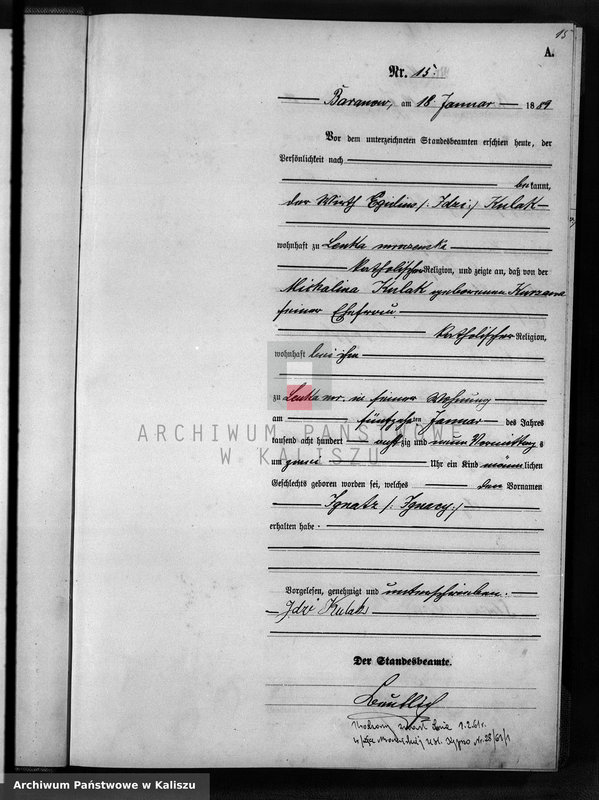 15
A.
Nr. 15.
Baranow, am 18 Januar 1889
Vor dem unterzeichneten Standesbeamten erschien heute, der
Persönlichkeit nach
bekannt,
der Wirth Egidius /: Idzi :/ Kulak
wohnhaft zu Lenka mroczenska
katholischer Religion, und zeigte an, daß von der
Michalina Kulak geborenen
seiner Ehefrau
katholischer Religion,
wohnhaft bei ihm
zu Lenka mr. in seiner Wohnung
am fünfzehnten Januar des Jahres
tausend acht hundert achtzig und neun Vormittags
um zwei Uhr ein Kind männlichen
Geschlechts geboren worden sei, welches den Vornamen
Ignatz /: Ignacy :/
erhalten habe.
Vorgelesen, genehmigt und unterschrieben.
Idzi Kulak
Der Standesbeamte.
zmarł dnia 1.2.61r.
28/61/1
ARCHIWUM PAŃSTWOWE
W KALISZU
Archiwum Państwowe w Kaliszu